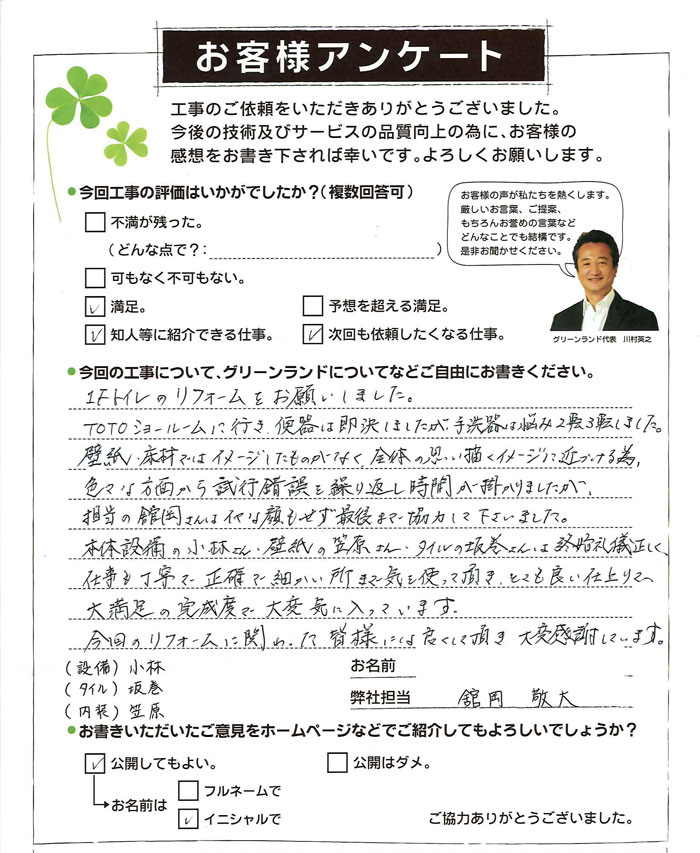 お客様アンケート
工事のご依頼をいただきありがとうございました。
今後の技術及びサービスの品質向上の為に、お客様の
感想をお書き下されば幸いです。よろしくお願いします。
●今回工事の評価はいかがでしたか?(複数回答可)
不満が残った。
(どんな点で?: )
可もなく不可もない。
満足。
予想を超える満足。
知人等に紹介できる仕事。
次回も依頼したくなる仕事。
お客様の声が私たちを熱くします。
厳しいお言葉、ご提案、
もちろんお誉めの言葉など
どんなことでも結構です。
是非お聞かせください。
グリーンランド代表 川村英之
●今回の工事について、グリーンランドについてなどご自由にお書きください。
1Fトイレのリフォームをお願いしました。
TOTOショールームに行き、便器は即決しましたが手洗器は悩み2転3転しました。
壁紙・床材ではイメージしたものがなく、全体の思い描くイメージに近づける為、
色々な方面から試行錯誤を繰り返し時間が掛かりましたが、
担当の舘岡さんはイヤな顔もせず最後まで協力して下さいました。
本体設備の小林さん・壁紙の笠原さん・タイルの坂巻さんは終始礼儀正しく、
仕事も丁寧で正確で細かい所まで気を使って頂き、とても良い仕上りで、
大満足の完成度で大変気に入っています。
今回のリフォームに関わった皆様には良くして頂き大変感謝しています。
(設備) 小林
(タイル) 坂巻
(内装) 笠原
お名前
弊社担当 舘岡 敬大
●お書きいただいたご意見をホームページなどでご紹介してもよろしいでしょうか?
公開してもよい。
公開はダメ。
お名前は
フルネームで
イニシャルで
ご協力ありがとうございました。